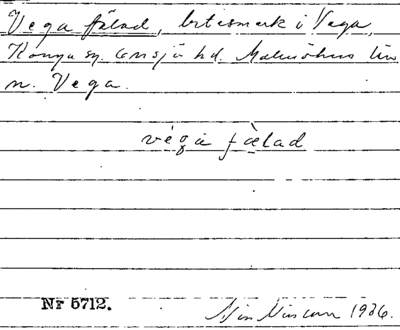 Vega fälad, betesmark i Vega,
Konga sn. Onsjö hd. Malmöhus län
n. Vega.
vega fælad
Nr 5712.
1936.